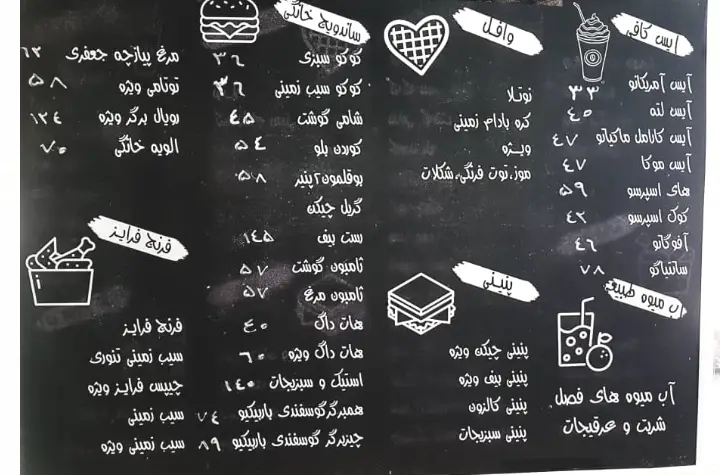 آیس کافی
آیس آمریکانو ۳۳
آیس لته ۴۵
آیس کارامل ماکیاتو ۴۷
آیس موکا ۴۷
های اسپرسو ۵۹
کوک اسپرسو ۴۲
آفوگاتو ۴۶
سانتیاگو ۷۸
آب میوه طبیعی
آب میوه های فصل
شربت و عرقیجات
وافل
نوتلا
کره بادام زمینی
ویژه
موز،توت فرنگی،شکلات
پنینی
پنینی چیکن ویژه
پنینی بیف ویژه
پنینی کالزون
پنینی سبزیجات
ساندویچ خانگی
کوکو سبزی ۳۶
کوکو سیب زمینی ۳۶
شامی گوشت ۴۵
کوردن بلو ۵۴
بوقلمون،پنیر ۵۸
گریل چیکن
رست بیف ۱۴۵
ژامبون گوشت ۵۷
ژامبون مرغ ۵۷
هات داگ ۴۰
هات داگ ویژه ۶۰
استیک و سبزیجات ۱۴۰
همبرگر گوسفندی باربیکیو ۷۴
چیزبرگر گوسفندی باربیکیو ۸۹
مرغ پیازچه جعفری ۶۲
تونامی ویژه ۵۸
رویال برگر ویژه ۱۲۴
الویه خانگی ۷۰
فرنچ فرایز
فرنچ فرایز
سیب زمینی تنوری
چیپس فرایز ویژه
سیب زمینی
سیب زمینی ویژه